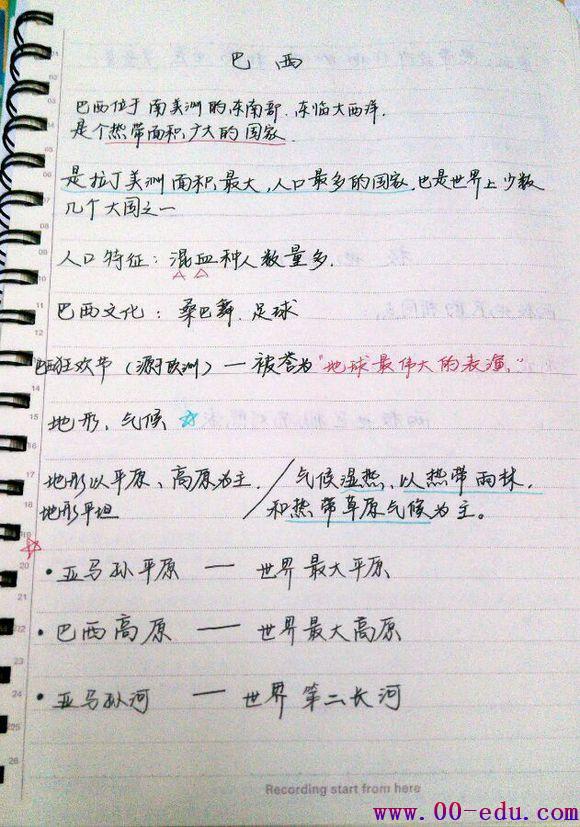 巴西
巴西位于南美洲的东南部,东临大西洋.
是个热带面积广大的国家.
是拉丁美洲面积最大,人口最多的国家,也是世界上少数
几个大国之一
人口特征:混血种人数量多.
巴西文化:桑巴舞.足球
巴西狂欢节(源于欧洲)—被誉为"地球最伟大的表演."
地形、气候
地形以平原、高原为主. / 气候湿热,以热带雨林.
地形平坦 和热带草原气候为主。
• 亚马孙平原 — 世界最大平原
• 巴西高原 — 世界最大高原
• 亚马孙河 — 世界第二长河
Recording start from here
www.00-edu.com